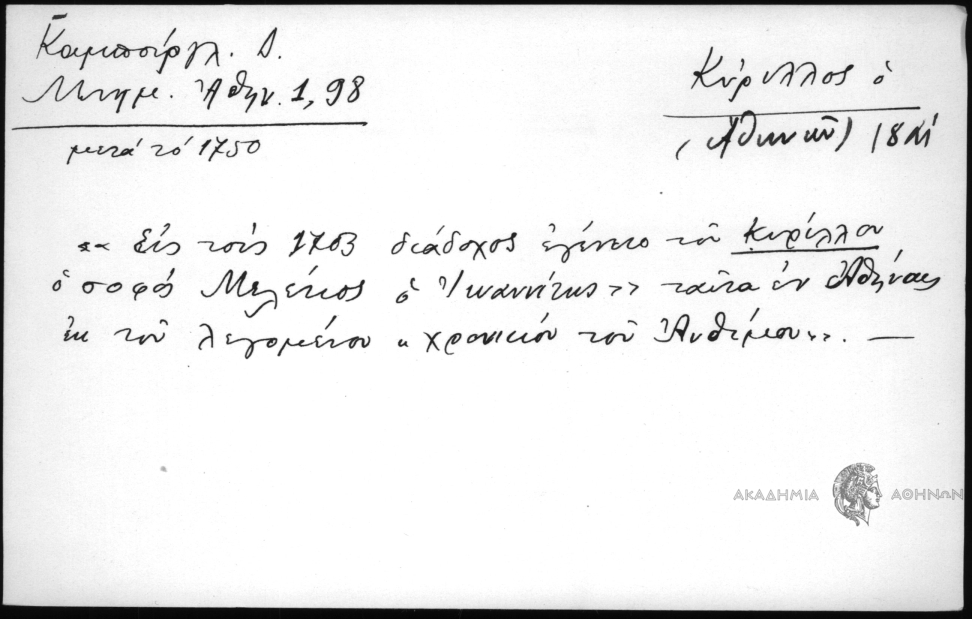 Καμπούργλ. Δ.
Μνημ. Ἀθην. 1, 98
μετά τό 1750
Κύριλλος ὁ
(Ἀθηνῶν)
«« Εἰς τούς 1703 διάδοχος ἐγένετο τοῦ Κυρίλλου
ὁ σοφός Μελέτιος ὁ Ἰωαννίτης »» ταῦτα ἐν Ἀθήναις
ἐκ τοῦ λεγομένου « χρονικόν τοῦ Ἀνθίμου »». —
ΑΚΑΔΗΜΙΑ ΑΘΗΝΩΝ